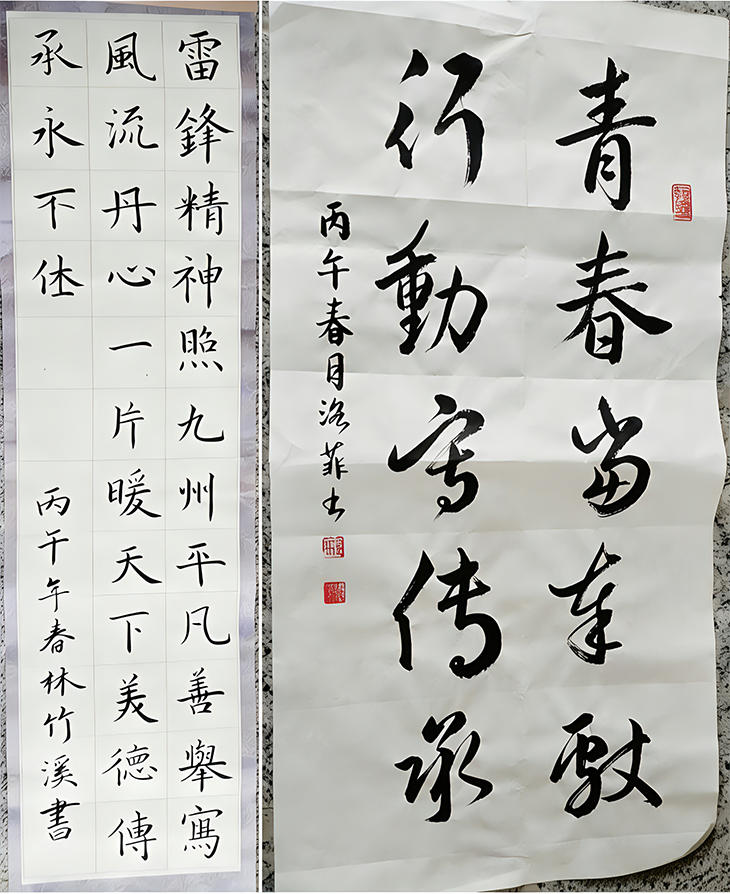 雷鋒精神照九州平凡善舉寫
風流丹心一片暖天下美德傳
承永不休
丙午年春林竹溪書
青春当奉献
行動写传承
丙午春月洛菲书